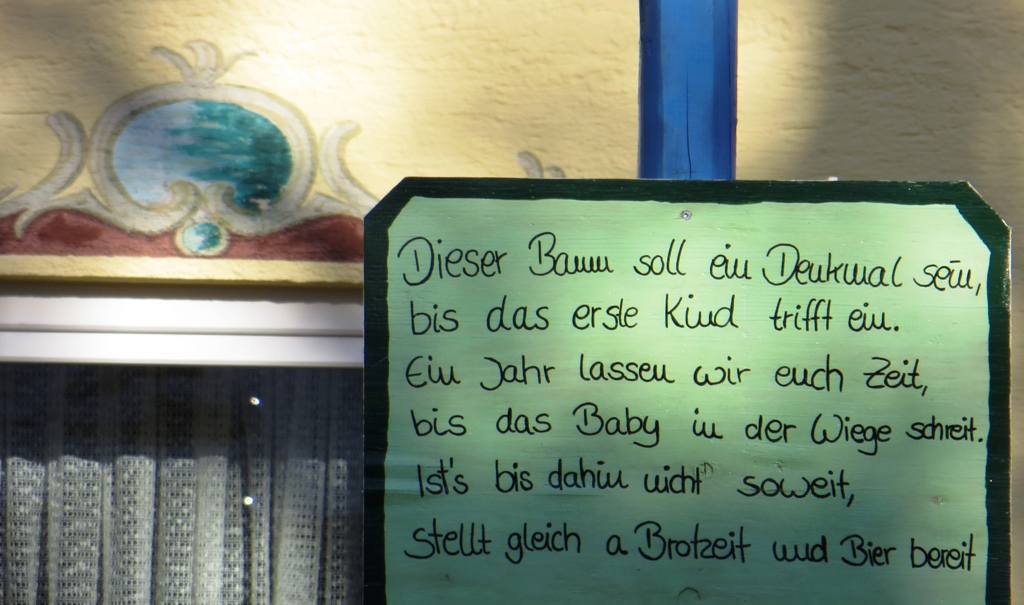 Dieser Baum soll ein Denkmal sein,
bis das erste Kind trifft ein.
Ein Jahr lassen wir euch Zeit,
bis das Baby in der Wiege schreit.
Ist's bis dahin nicht soweit,
stellt gleich a Brotzeit und Bier bereit